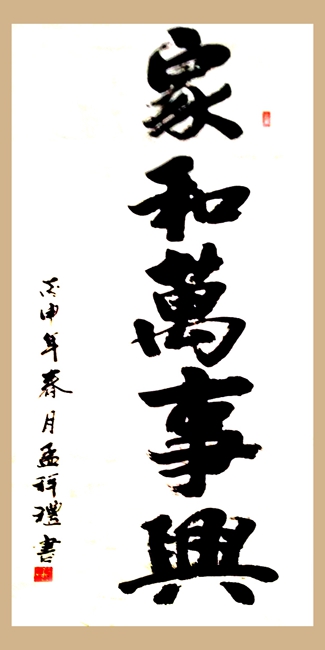 家和萬事興
丙申年春月孟祥禮書